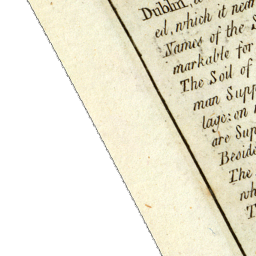 Dublin,
ed, which it near
Names of the S
markable for
The Soil of
man Supp
lage: on
are Sup
Beside
The
wh
T